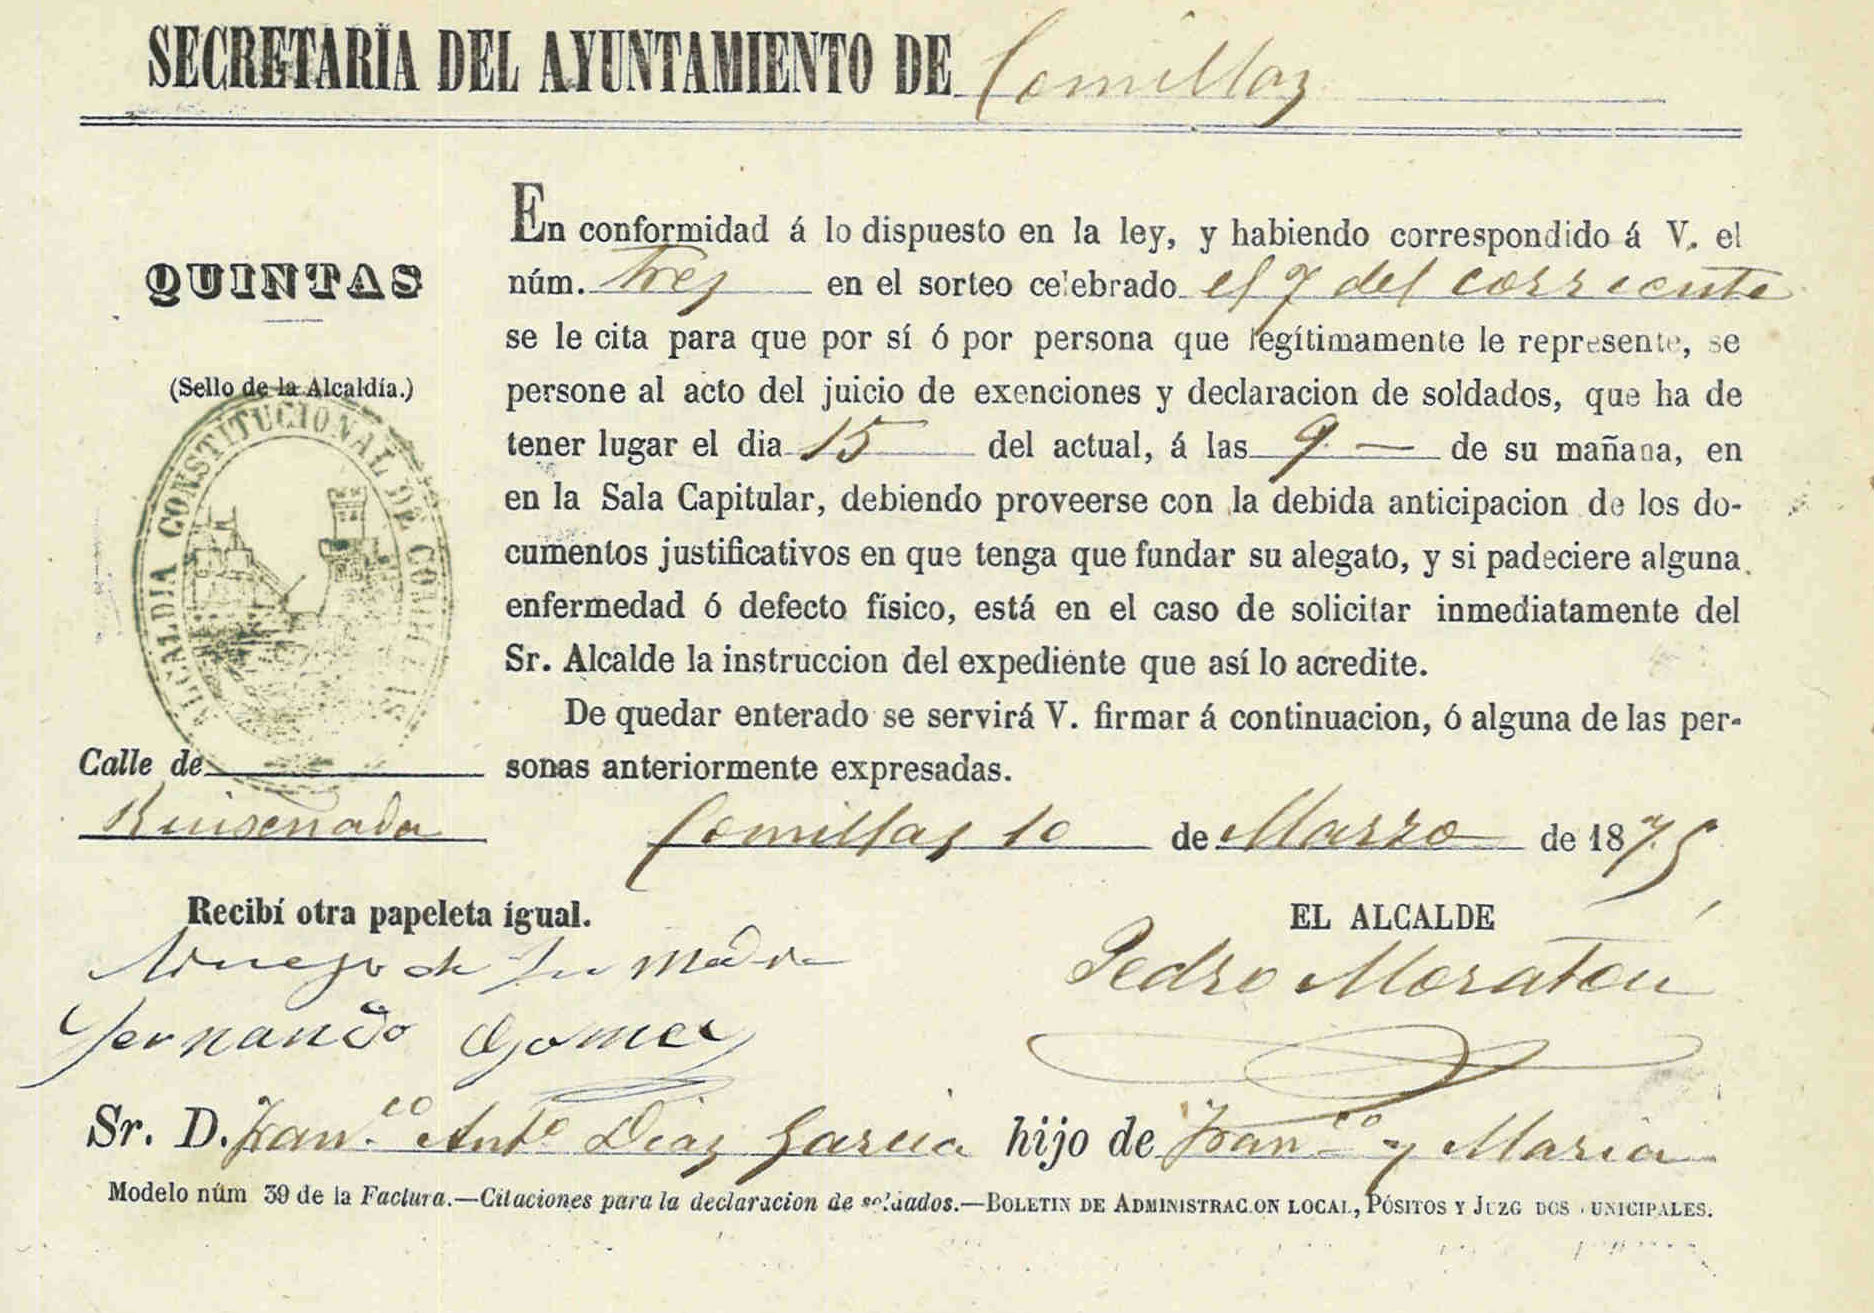 SECRETARÍA DEL AYUNTAMIENTO DE Comillas
QUINTAS
(Sello de la Alcaldía.)
ALCALDIA CONSTITUCIONAL DE COMILLAS
Calle de
Ruiseñada
En conformidad á lo dispuesto en la ley, y habiendo correspondido á V. el
núm. tres en el sorteo celebrado el 7 del corriente
se le cita para que por sí ó por persona que legítimamente le represente, se
persone al acto del juicio de exenciones y declaracion de soldados, que ha de
tener lugar el dia 15 del actual, á las 9 — de su mañana, en
en la Sala Capitular, debiendo proveerse con la debida anticipacion de los do-
cumentos justificativos en que tenga que fundar su alegato, y si padeciere alguna
enfermedad ó defecto físico, está en el caso de solicitar inmediatamente del
Sr. Alcalde la instruccion del expediente que así lo acredite.
De quedar enterado se servirá V. firmar á continuacion, ó alguna de las per-
sonas anteriormente expresadas.
Comillas 10 de Marzo de 1875
Recibí otra papeleta igual.
A ruego de su madre
Fernando Gomez
EL ALCALDE
Pedro Moratou
Sr. D. Franco Anto Diaz Garcia hijo de Franco y Maria
Modelo núm 39 de la Factura.—Citaciones para la declaracion de soldados.—BOLETIN DE ADMINISTRACION LOCAL, PÓSITOS Y JUZGADOS MUNICIPALES.